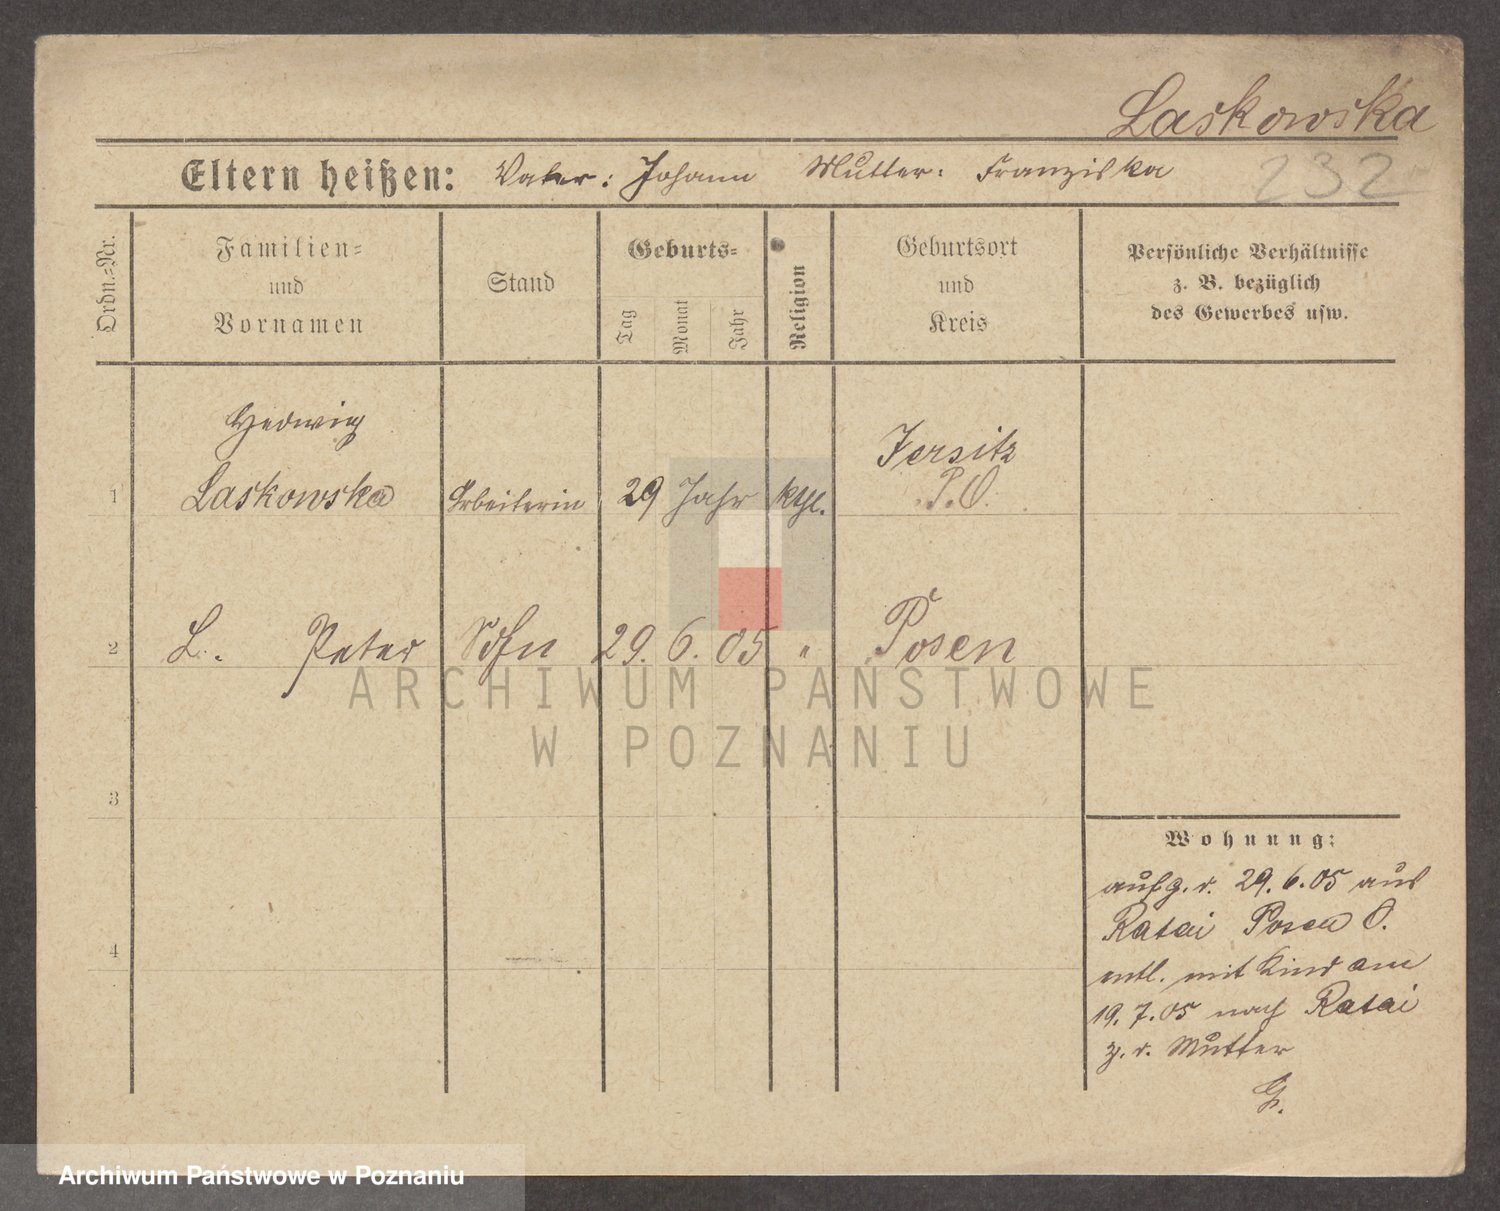 Laskowska
Eltern heißen: Vater: Johann Mutter: Franziska
232
Ordn.=Nr.
Familien=
und
Vornamen
Stand
Geburts=
Tag
Monat
Jahr
Religion
Geburtsort
und
Kreis
Persönliche Verhältnisse
z. B. bezüglich
des Gewerbes usw.
Hedwig
1 Laskowska Arbeiterin 29 Jahr kthl. Jersitz
P. O.
2 L. Peter Sohn 29. 6. 05 " Posen
ARCHIWUM PAŃSTWOWE
W POZNANIU
3
4
Wohnung:
aufg. v. 29. 6. 05 aus
Ratai Posen O.
entl. mit Kind am
19. 7. 05 nach Ratai
z. d. Mutter
G.
Archiwum Państwowe w Poznaniu